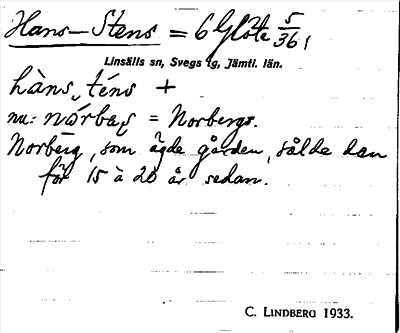 Hans-Stens = 6 Glöte 5/36,
Linsälls sn, Svegs tg, Jämtl. län.
hàns, téns +
nu: nórbæs = Norbergs.
Norberg, som ägde gården, sålde den
för 15 à 20 år sedan.
C. LINDBERG 1933.